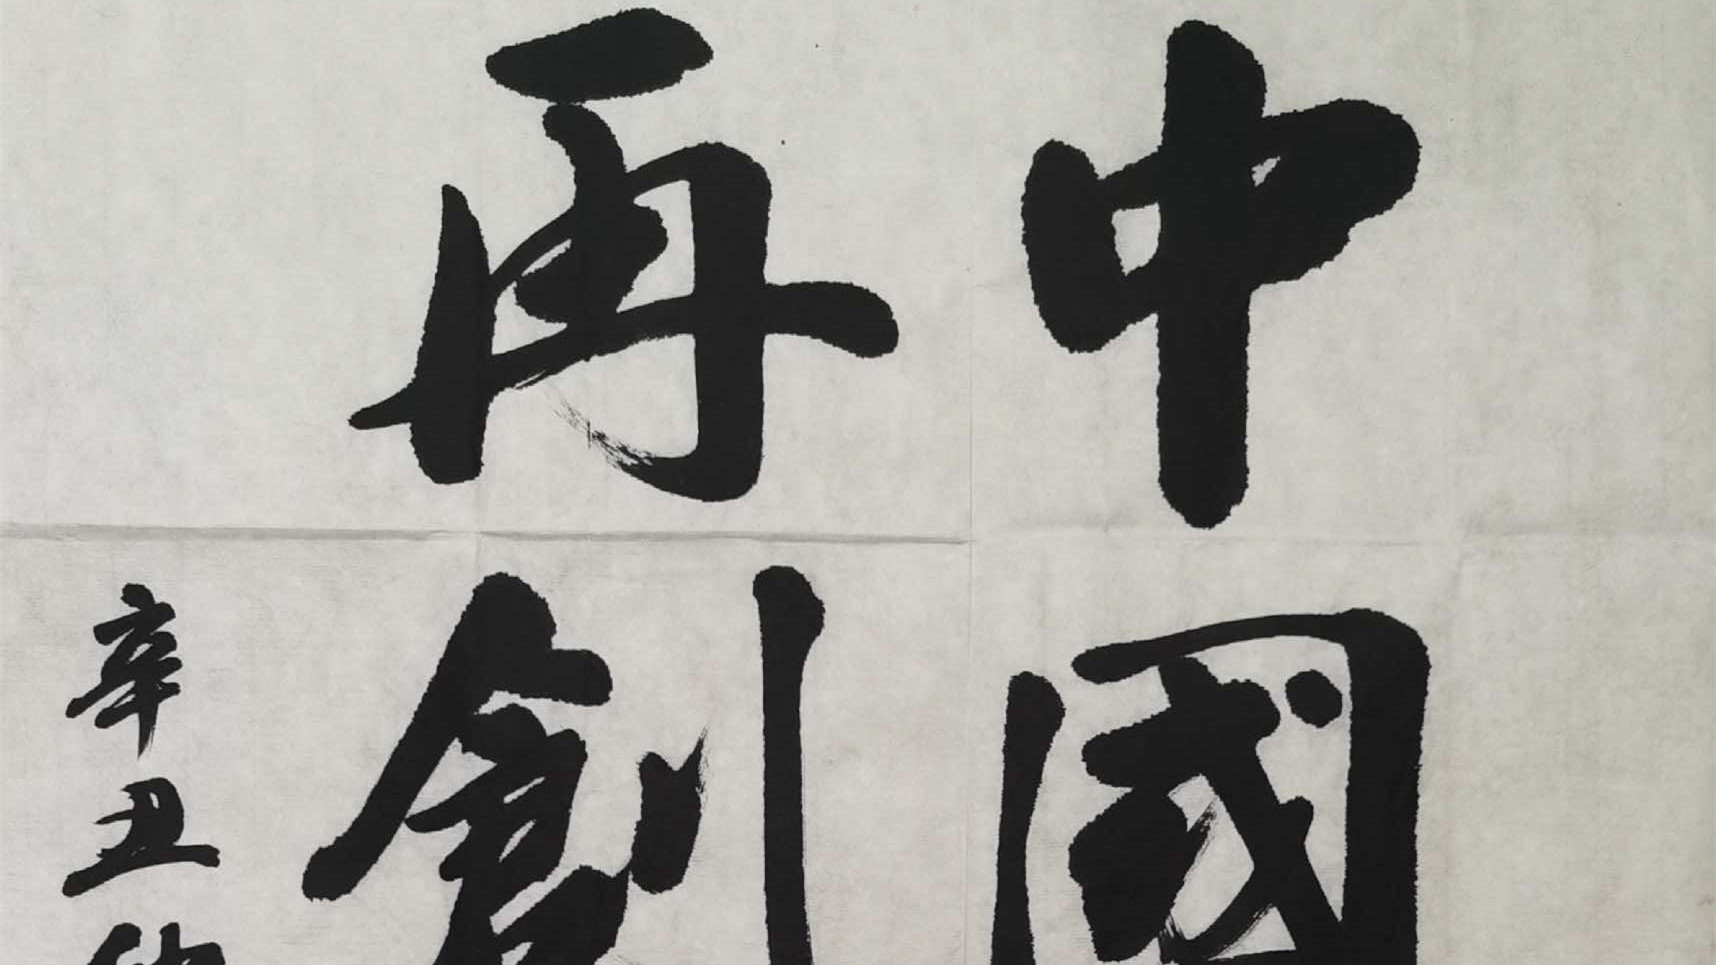 中國
再創
辛丑